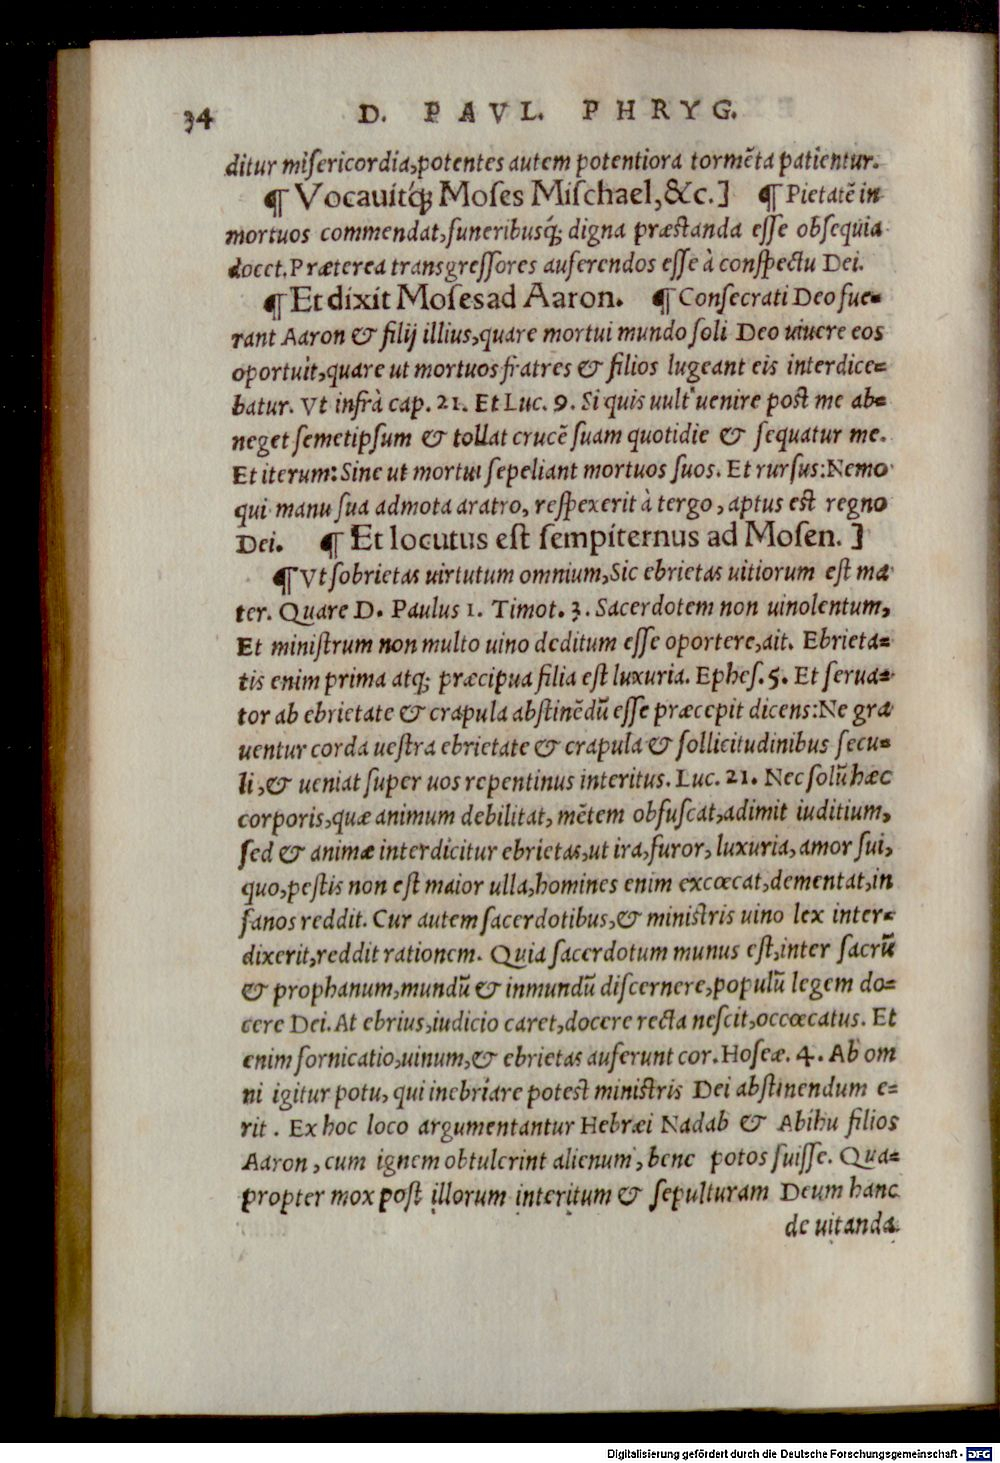 34 D. PAVL. PHRYG.
ditur misericordia, potentes autem potentiora tormēta patientur.
¶ Vocauitq́; Moses Mischael, &c.] ¶ Pietatē in
mortuos commendat, funeribusq́; digna præstanda esse obsequia
docet. Præterea transgressores auferendos esse à conspectu Dei.
¶ Et dixit Moses ad Aaron. ¶ Consecrati Deo fue-
rant Aaron & filij illius, quare mortui mundo soli Deo uiuere eos
oportuit, quare ut mortuos fratres & filios lugeant eis interdice-
batur. Vt infrà cap. 21. Et Luc. 9. Si quis uult uenire post me ab-
neget semetipsum & tollat crucē suam quotidie & sequatur me.
Et iterum: Sine ut mortui sepeliant mortuos suos. Et rursus: Nemo
qui manu sua admota aratro, respexerit à tergo, aptus est regno
Dei. ¶ Et locutus est sempiternus ad Mosen.]
¶ Vt sobrietas uirtutum omnium, Sic ebrietas uitiorum est ma
ter. Quare D. Paulus 1. Timot. 3. Sacerdotem non uinolentum,
Et ministrum non multo uino deditum esse oportere, ait. Ebrieta-
tis enim prima atq; præcipua filia est luxuria. Ephes. 5. Et serua-
tor ab ebrietate & crapula abstinēdū esse præcepit dicens: Ne gra
uentur corda uestra ebrietate & crapula & sollicitudinibus secu-
li, & ueniat super uos repentinus interitus. Luc. 21. Nec solū hæc
corporis, quæ animum debilitat, mētem obfuscat, adimit iuditium,
sed & animæ interdicitur ebrietas, ut ira, furor, luxuria, amor sui,
quo, pestis non est maior ulla, homines enim excœcat, dementat, in
sanos reddit. Cur autem sacerdotibus, & ministris uino lex inter-
dixerit, reddit rationem. Quia sacerdotum munus est, inter sacrū
& prophanum, mundū & inmundū discernere, populū legem do-
cere Dei. At ebrius, iudicio caret, docere recta nescit, occœcatus. Et
enim fornicatio, uinum, & ebrietas auferunt cor. Hoseæ. 4. Ab om
ni igitur potu, qui inebriare potest ministris Dei abstinendum e-
rit. Ex hoc loco argumentantur Hebræi Nadab & Abihu filios
Aaron, cum ignem obtulerint alienum, bene potos fuisse. Qua-
propter mox post illorum interitum & sepulturam Deum hanc
de uitanda
Digitalisierung gefördert durch die Deutsche Forschungsgemeinschaft - DFG